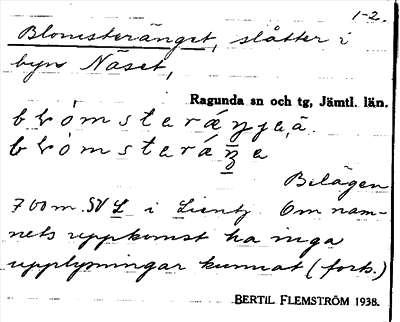 1-2.
Blomsteränget, slåtter i
byn Näset,
Ragunda sn och tg, Jämtl. län.
Belägen
700 m. SV L i Lientz. Om nam-
nets uppkomst ha inga
upplysningar kunnat (forts.)
BERTIL FLEMSTRÖM 1938.